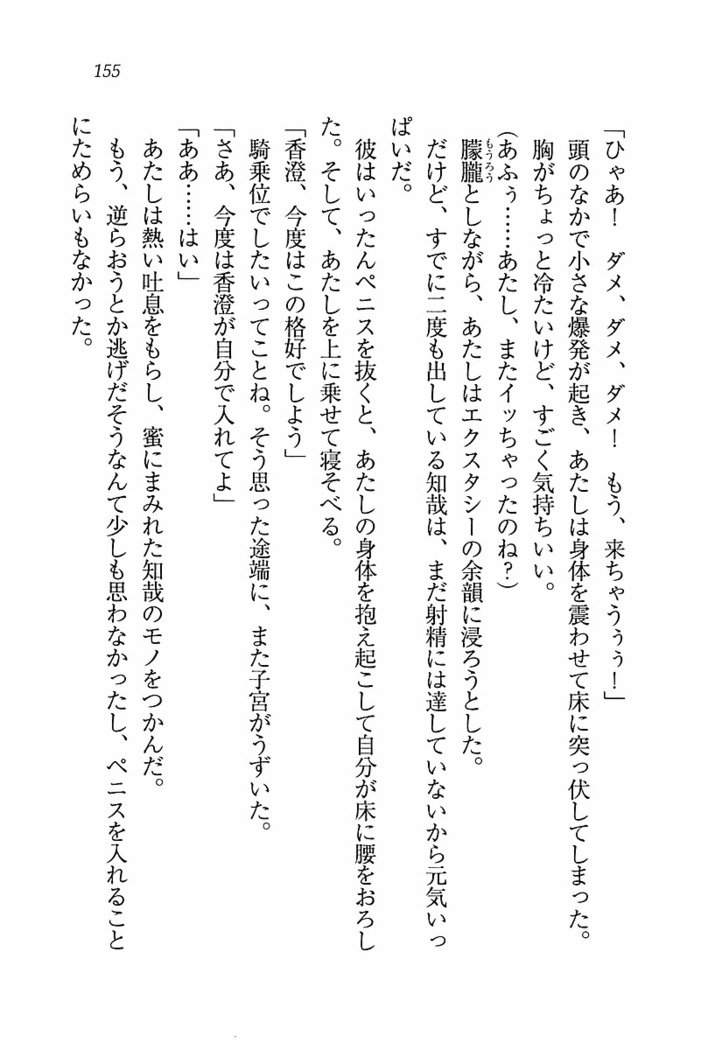 155
「ひゃあ！　ダメ、ダメ、ダメ！　もう、来ちゃうぅぅ！」
頭のなかで小さな爆発が起き、あたしは身体を震わせて床に突っ伏してしまった。
胸がちょっと冷たいけど、すごく気持ちいい。
(あふぅ……あたし、またイッちゃったのね？)
もうろう
朦朧としながら、あたしはエクスタシーの余韻に浸ろうとした。
だけど、すでに二度も出している知哉は、まだ射精には達していないから元気いっ
ぱいだ。
彼はいったんペニスを抜くと、あたしの身体を抱え起こして自分が床に腰をおろし
た。そして、あたしを上に乗せて寝そべる。
「香澄、今度はこの格好でしよう」
騎乗位でしたいってことね。そう思った途端に、また子宮がうずいた。
「さあ、今度は香澄が自分で入れてよ」
「ああ……はい」
あたしは熱い吐息をもらし、蜜にまみれた知哉のモノをつかんだ。
もう、逆らおうとか逃げだそうなんて少しも思わなかったし、ペニスを入れること
にためらいもなかった。